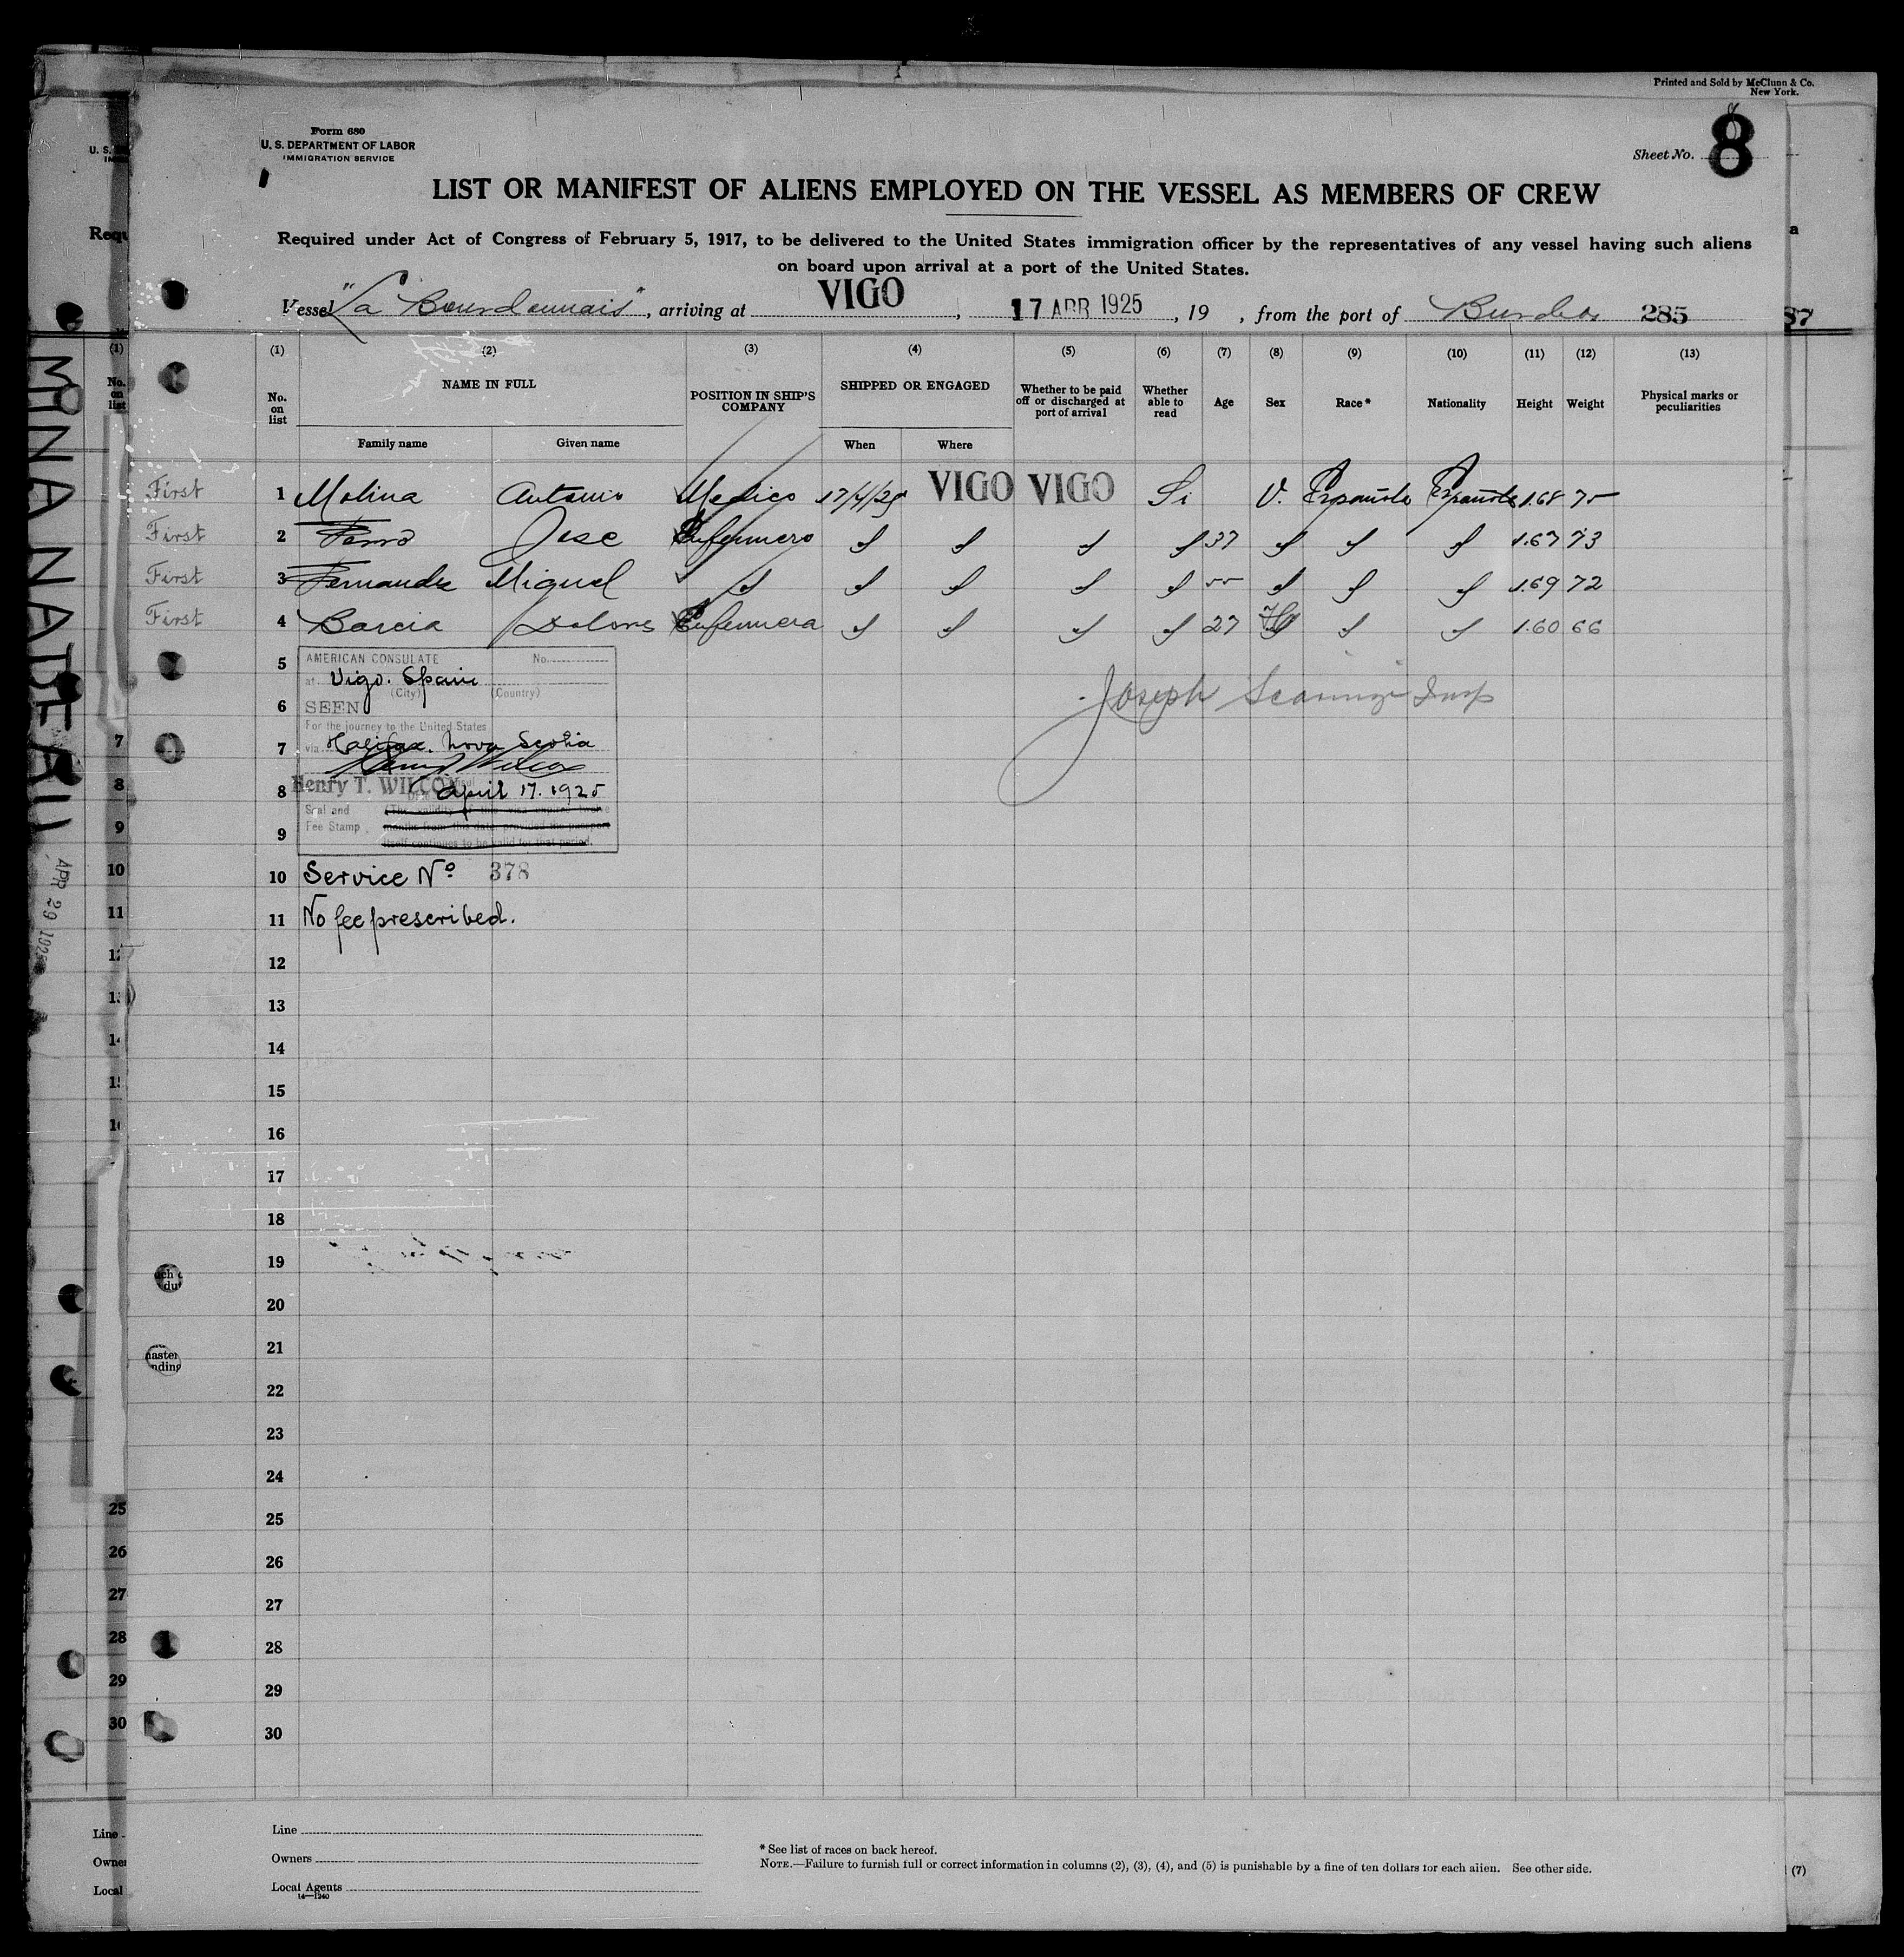 Printed and Sold by McClunn & Co.
New York.
Form 680
U. S. DEPARTMENT OF LABOR
IMMIGRATION SERVICE
Sheet No. 8
LIST OR MANIFEST OF ALIENS EMPLOYED ON THE VESSEL AS MEMBERS OF CREW
Required under Act of Congress of February 5, 1917, to be delivered to the United States immigration officer by the representatives of any vessel having such aliens
on board upon arrival at a port of the United States.
Vessel "La Bourdonnais", arriving at VIGO, 17 APR 1925, 19 , from the port of 285
87
(1) (2) (3) (4) (5) (6) (7) (8) (9) (10) (11) (12) (13)
No. on list NAME IN FULL POSITION IN SHIP'S COMPANY SHIPPED OR ENGAGED Whether to be paid off or discharged at port of arrival Whether able to read Age Sex Race* Nationality Height Weight Physical marks or peculiarities
Family name Given name When Where
First 1 Molina Antonio Medico 17/4/25 VIGO VIGO Si V. Española Española 1.68 75
First 2 Jose Enfermero 37 1.67 73
First 3 Fernandez Miguel 55 1.69 72
First 4 Garcia Dolores Enfermera 27 1.60 66
5
AMERICAN CONSULATE No.
at Vigo. Spain
(City) (Country)
6
SEEN
Joseph Insp
For the journey to the United States
7
via Halifax. Nova Scotia
Henry T. Wilcox
8
Henry T. WILCOX
April 17. 1925
Seal and (The validity of this visa expires twelve
Fee Stamp months from this date provided the passport
9
itself continues to be valid for that period.
10 Service Nº 378
11 No fee prescribed.
12
13
14
15
16
17
18
19
20
21
22
23
24
25
26
27
28
29
30
Line
Owners
Local Agents
14—1240
* See list of races on back hereof.
NOTE.—Failure to furnish full or correct information in columns (2), (3), (4), and (5) is punishable by a fine of ten dollars for each alien. See other side.
(7)
MINA NADEAU
APR 29 192